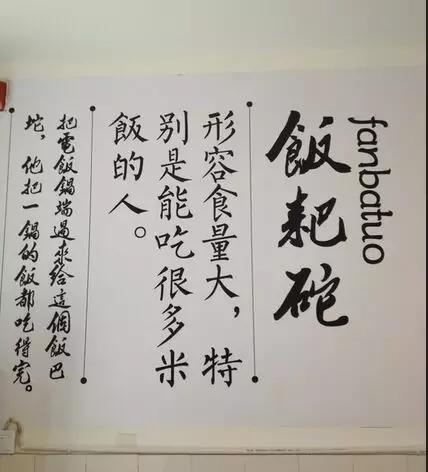 fanbatuo
飯耙砣
形容食量大，特
别是能吃很多米
飯的人。
把電飯鍋端過來給這個飯巴
坨，他把一鍋的飯都吃得完。